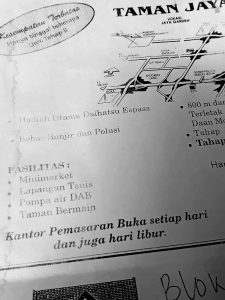 Kesempatan Terbatas
Hanya tinggal beberapa
Unit Tahap II
TAMAN JAYA
LOKASI
JAYA GARDEN
• Hadiah Utama Daihatsu Espass
• Bebas Banjir dan Polusi
• 800 m da
Terletak
Daan Mo
• Tahap
• Tahap
Ha
FASILITAS :
• Minimarket
• Lapangan Tenis
• Pompa air DAB
• Taman Bermain
Kantor Pemasaran Buka setiap hari
dan juga hari libur.
Blok